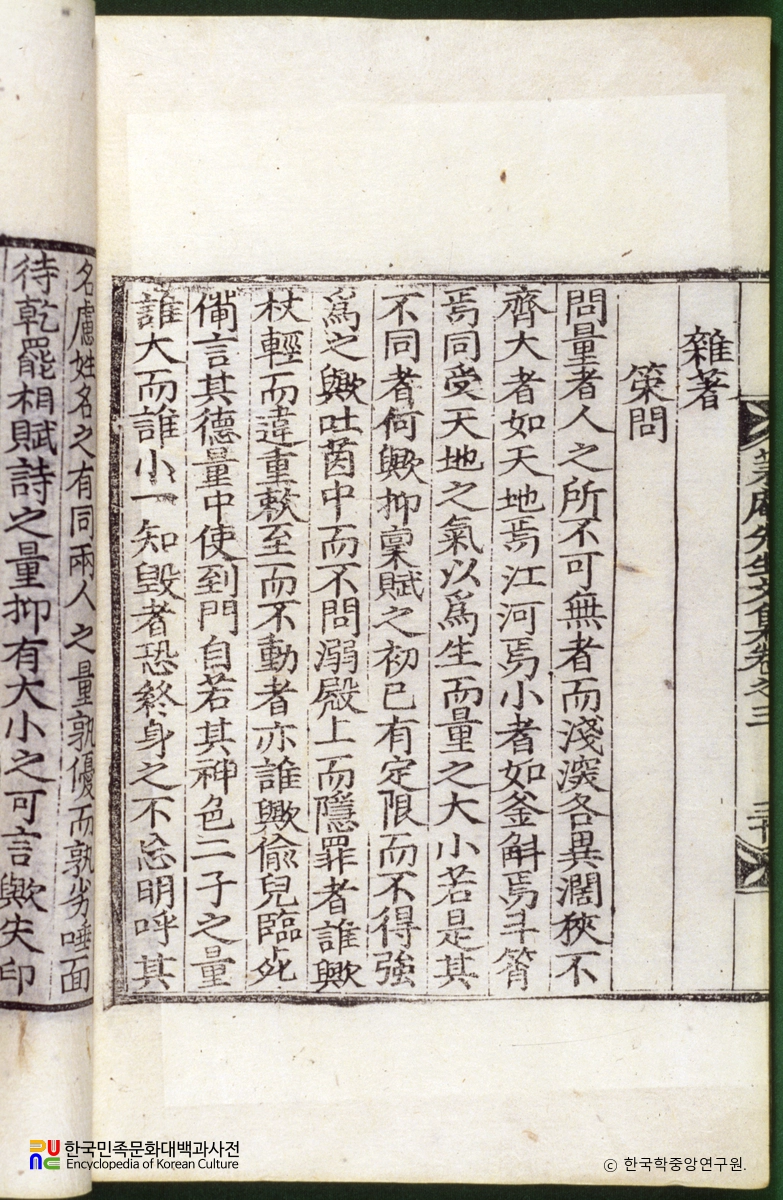 雜著
策問
問量者人之所不可無者而淺深各異濶狹不
齊大者如天地焉江河焉小者如釜斛焉斗筲
焉同受天地之氣以爲生而量之大小若是其
不同者何歟抑稟賦之初已有定限而不得強
爲之歟吐茵中而不問溺殿上而隱罪者誰歟
杖輕而違重敕至而不動者亦誰歟偸兒臨死
備言其德量中使到門自若其神色二子之量
誰大而誰小一知毁者恐終身之不忘明呼其
名慮姓名之有同兩人之量孰優而孰劣唾面
待乾罷相賦詩之量抑有大小之可言歟失印
先生文集卷之三
한국민족문화대백과사전
Encyclopedia of Korean Culture
ⓒ 한국학중앙연구원.